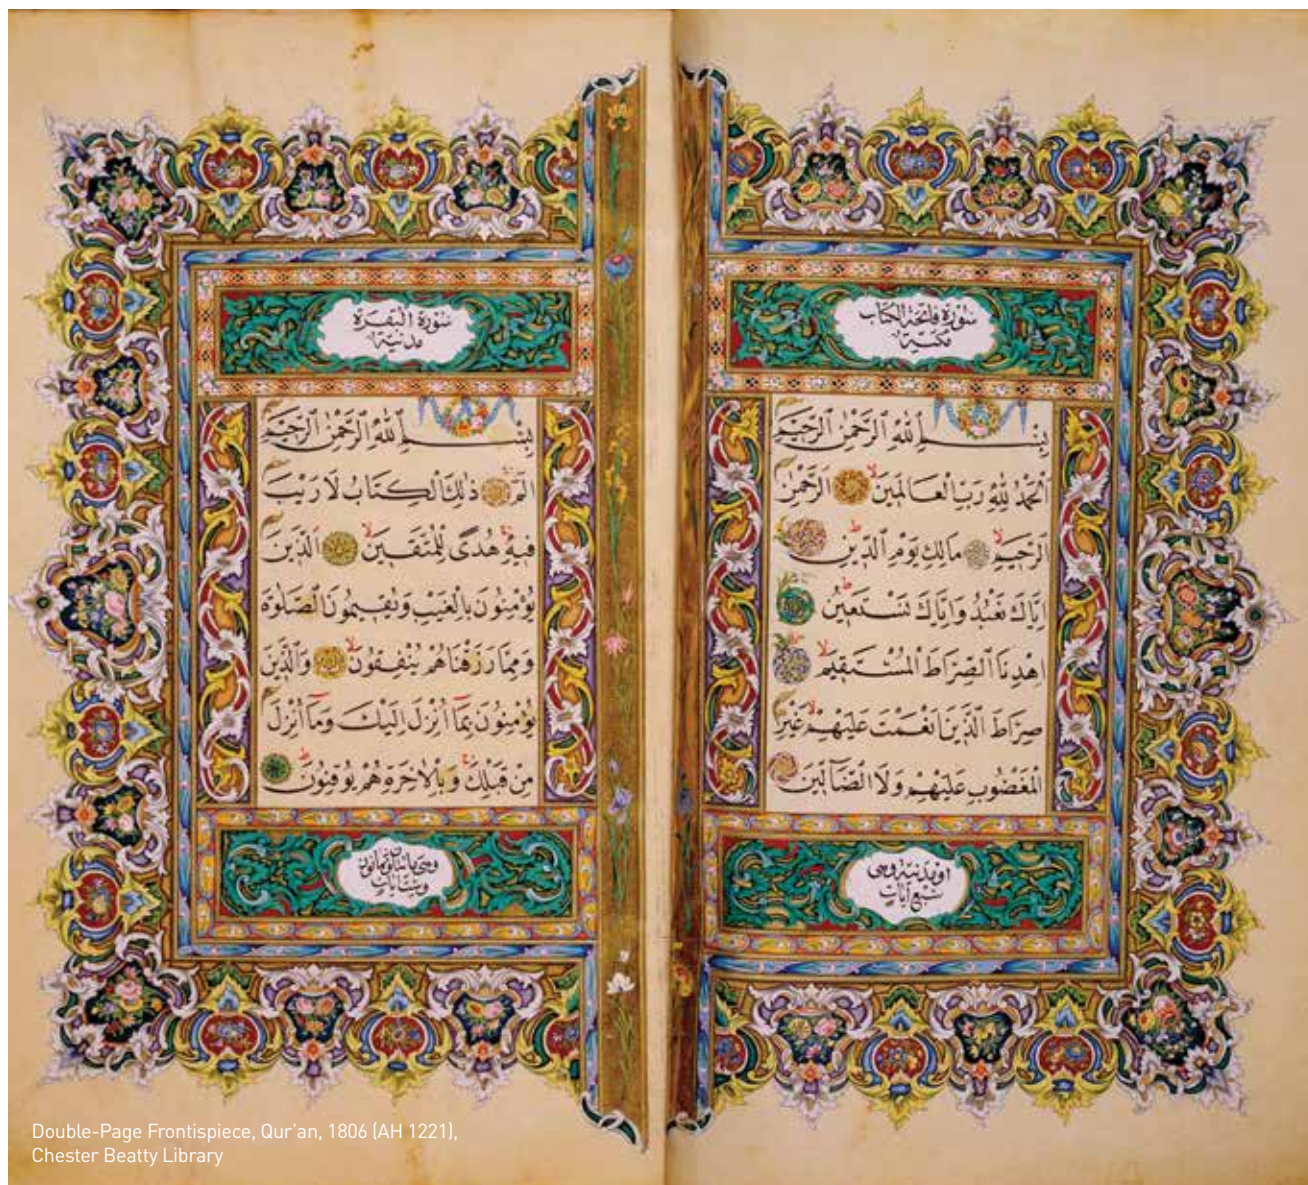 سُورَةُ فَاتِحَةِ الْكِتَابِ
مَكِّيَّةٌ
بِسْمِ ٱللّٰهِ ٱلرَّحْمٰنِ ٱلرَّحِيمِ
اَلْحَمْدُ لِلّٰهِ رَبِّ الْعَالَمِينَ ۙ الرَّحْمٰنِ
الرَّحِيمِ ۙ مَالِكِ يَوْمِ الدِّينِ ۜ
اِيَّاكَ نَعْبُدُ وَاِيَّاكَ نَسْتَعِينُ ۜ
اِهْدِنَا الصِّرَاطَ الْمُسْتَقِيمَ ۙ
صِرَاطَ الَّذِينَ اَنْعَمْتَ عَلَيْهِمْ ۙ غَيْرِ
الْمَغْضُوبِ عَلَيْهِمْ وَلَا الضَّٓالِّينَ
اَوْ مَدَنِيَّةٌ وَهِيَ
سَبْعُ اٰيَاتٍ
سُورَةُ الْبَقَرَةِ
مَدَنِيَّةٌ
بِسْمِ ٱللّٰهِ ٱلرَّحْمٰنِ ٱلرَّحِيمِ
الٓمٓ ذٰلِكَ الْكِتَابُ لَا رَيْبَ
فِيهِ هُدًى لِلْمُتَّقِينَ ۙ الَّذِينَ
يُؤْمِنُونَ بِالْغَيْبِ وَيُقِيمُونَ الصَّلٰوةَ
وَمِمَّا رَزَقْنَاهُمْ يُنْفِقُونَ ۙ وَالَّذِينَ
يُؤْمِنُونَ بِمَٓا اُنْزِلَ اِلَيْكَ وَمَٓا اُنْزِلَ
مِنْ قَبْلِكَ وَبِالْاٰخِرَةِ هُمْ يُوقِنُونَ ۜ
وَهِيَ مِائَتَانِ وَثَمَانُونَ
وَسِتُّ اٰيَاتٍ
Double-Page Frontispiece, Qur'an, 1806 (AH 1221),
Chester Beatty Library